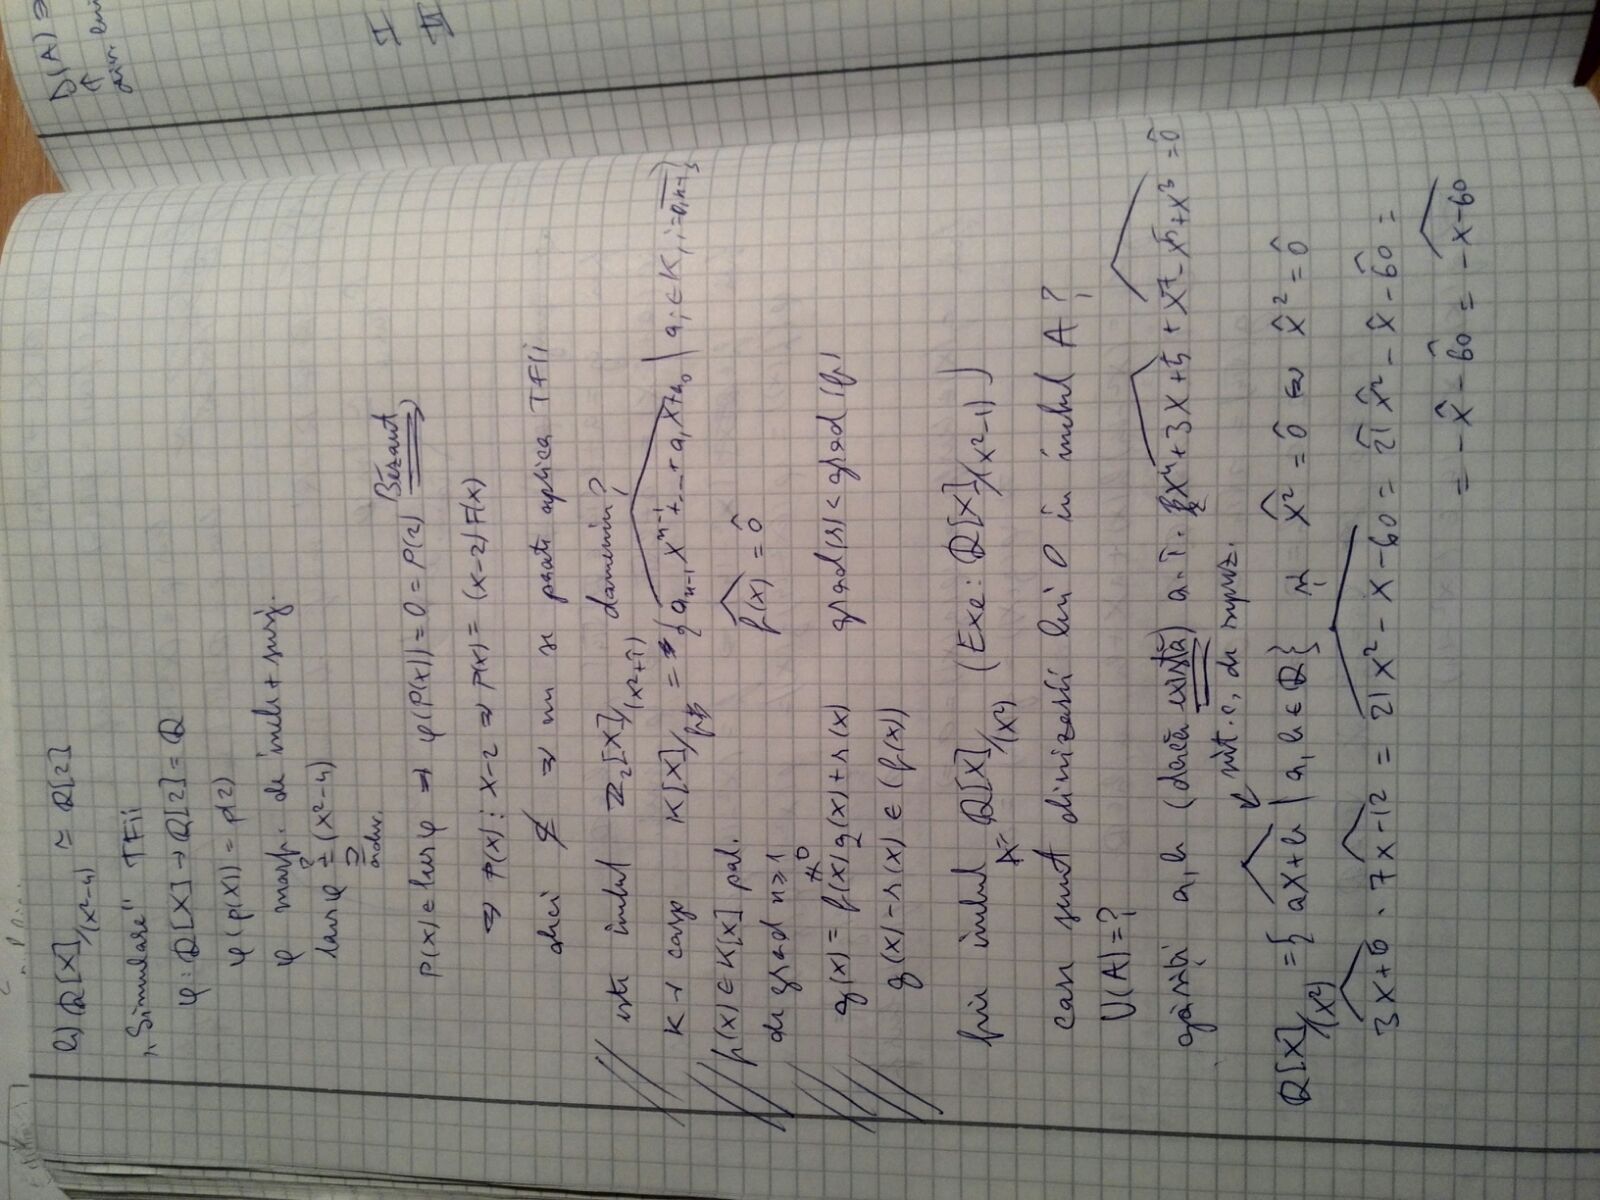 b) Q[X]/(x²-4) ≃ Q[2]
„Simulare" TFIi
φ: Q[X] → Q[2] = Q
φ(P(X)) = P(2)
φ morf. de inele + surj.
kerφ = (x²-4)
⊇
P(X) ∈ kerφ ⇒ φ(P(X)) = 0 = P(2) Bézout
⇒ P(X) ⋮ X-2 ⇒ P(X) = (X-2)F(X)
deci ⊄ ⇒ nu se poate aplica TFIi
este inelul Z₂[X]/(x²+1̂) domeniu?
K → corp K[X]/ = { aₙ₋₁Xⁿ⁻¹ + ... + a₁X + a₀ | aᵢ ∈ K, i = 0,n-1 }
f(X) ∈ K[X] pol. f(X) = 0̂
de grad n ≥ 1
g(X) = f(X)q(X) + r(X) grad(r) < grad(f)
g(X) - r(X) ∈ (f(X))
fie inelul A = Q[X]/(x²) (Exe: Q[X]/(x²-1))
care sunt divizorii lui 0 în inelul A?
U(A) = ?
găsiți a, b (dacă există) a.î. X⁴ + 3X + 5 + X⁷ - X⁵ + X³ = 0̂
sist. c. de reprez.
Q[X]/(x²) = { aX + b | a, b ∈ Q } și X² = 0̂ ⇔ X̂² = 0̂
3X+6 · 7X-12 = 21X² - X - 60 = 21 X̂² - X̂ - 60 =
= - X̂ - 60 = -X-60
D(A)
I
II